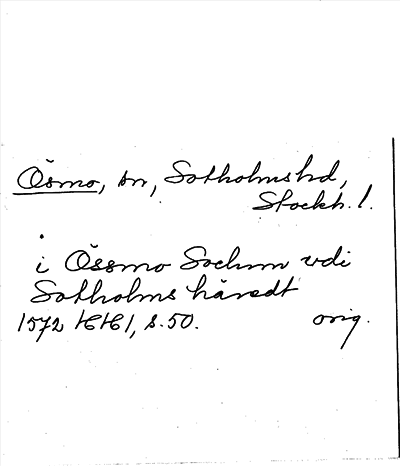 Ösmo, sn, Sotholms hd,
Stockh. l.
i Össmo Sochnn vdi
Sotholms häredt
1572 HH1, s. 50. orig.